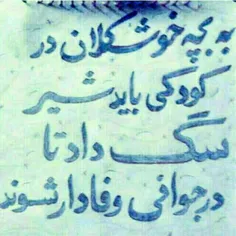 به بچه خوشکلان در
کودکی باید شیر
سگ داد تا
درجوانی وفادار شوند